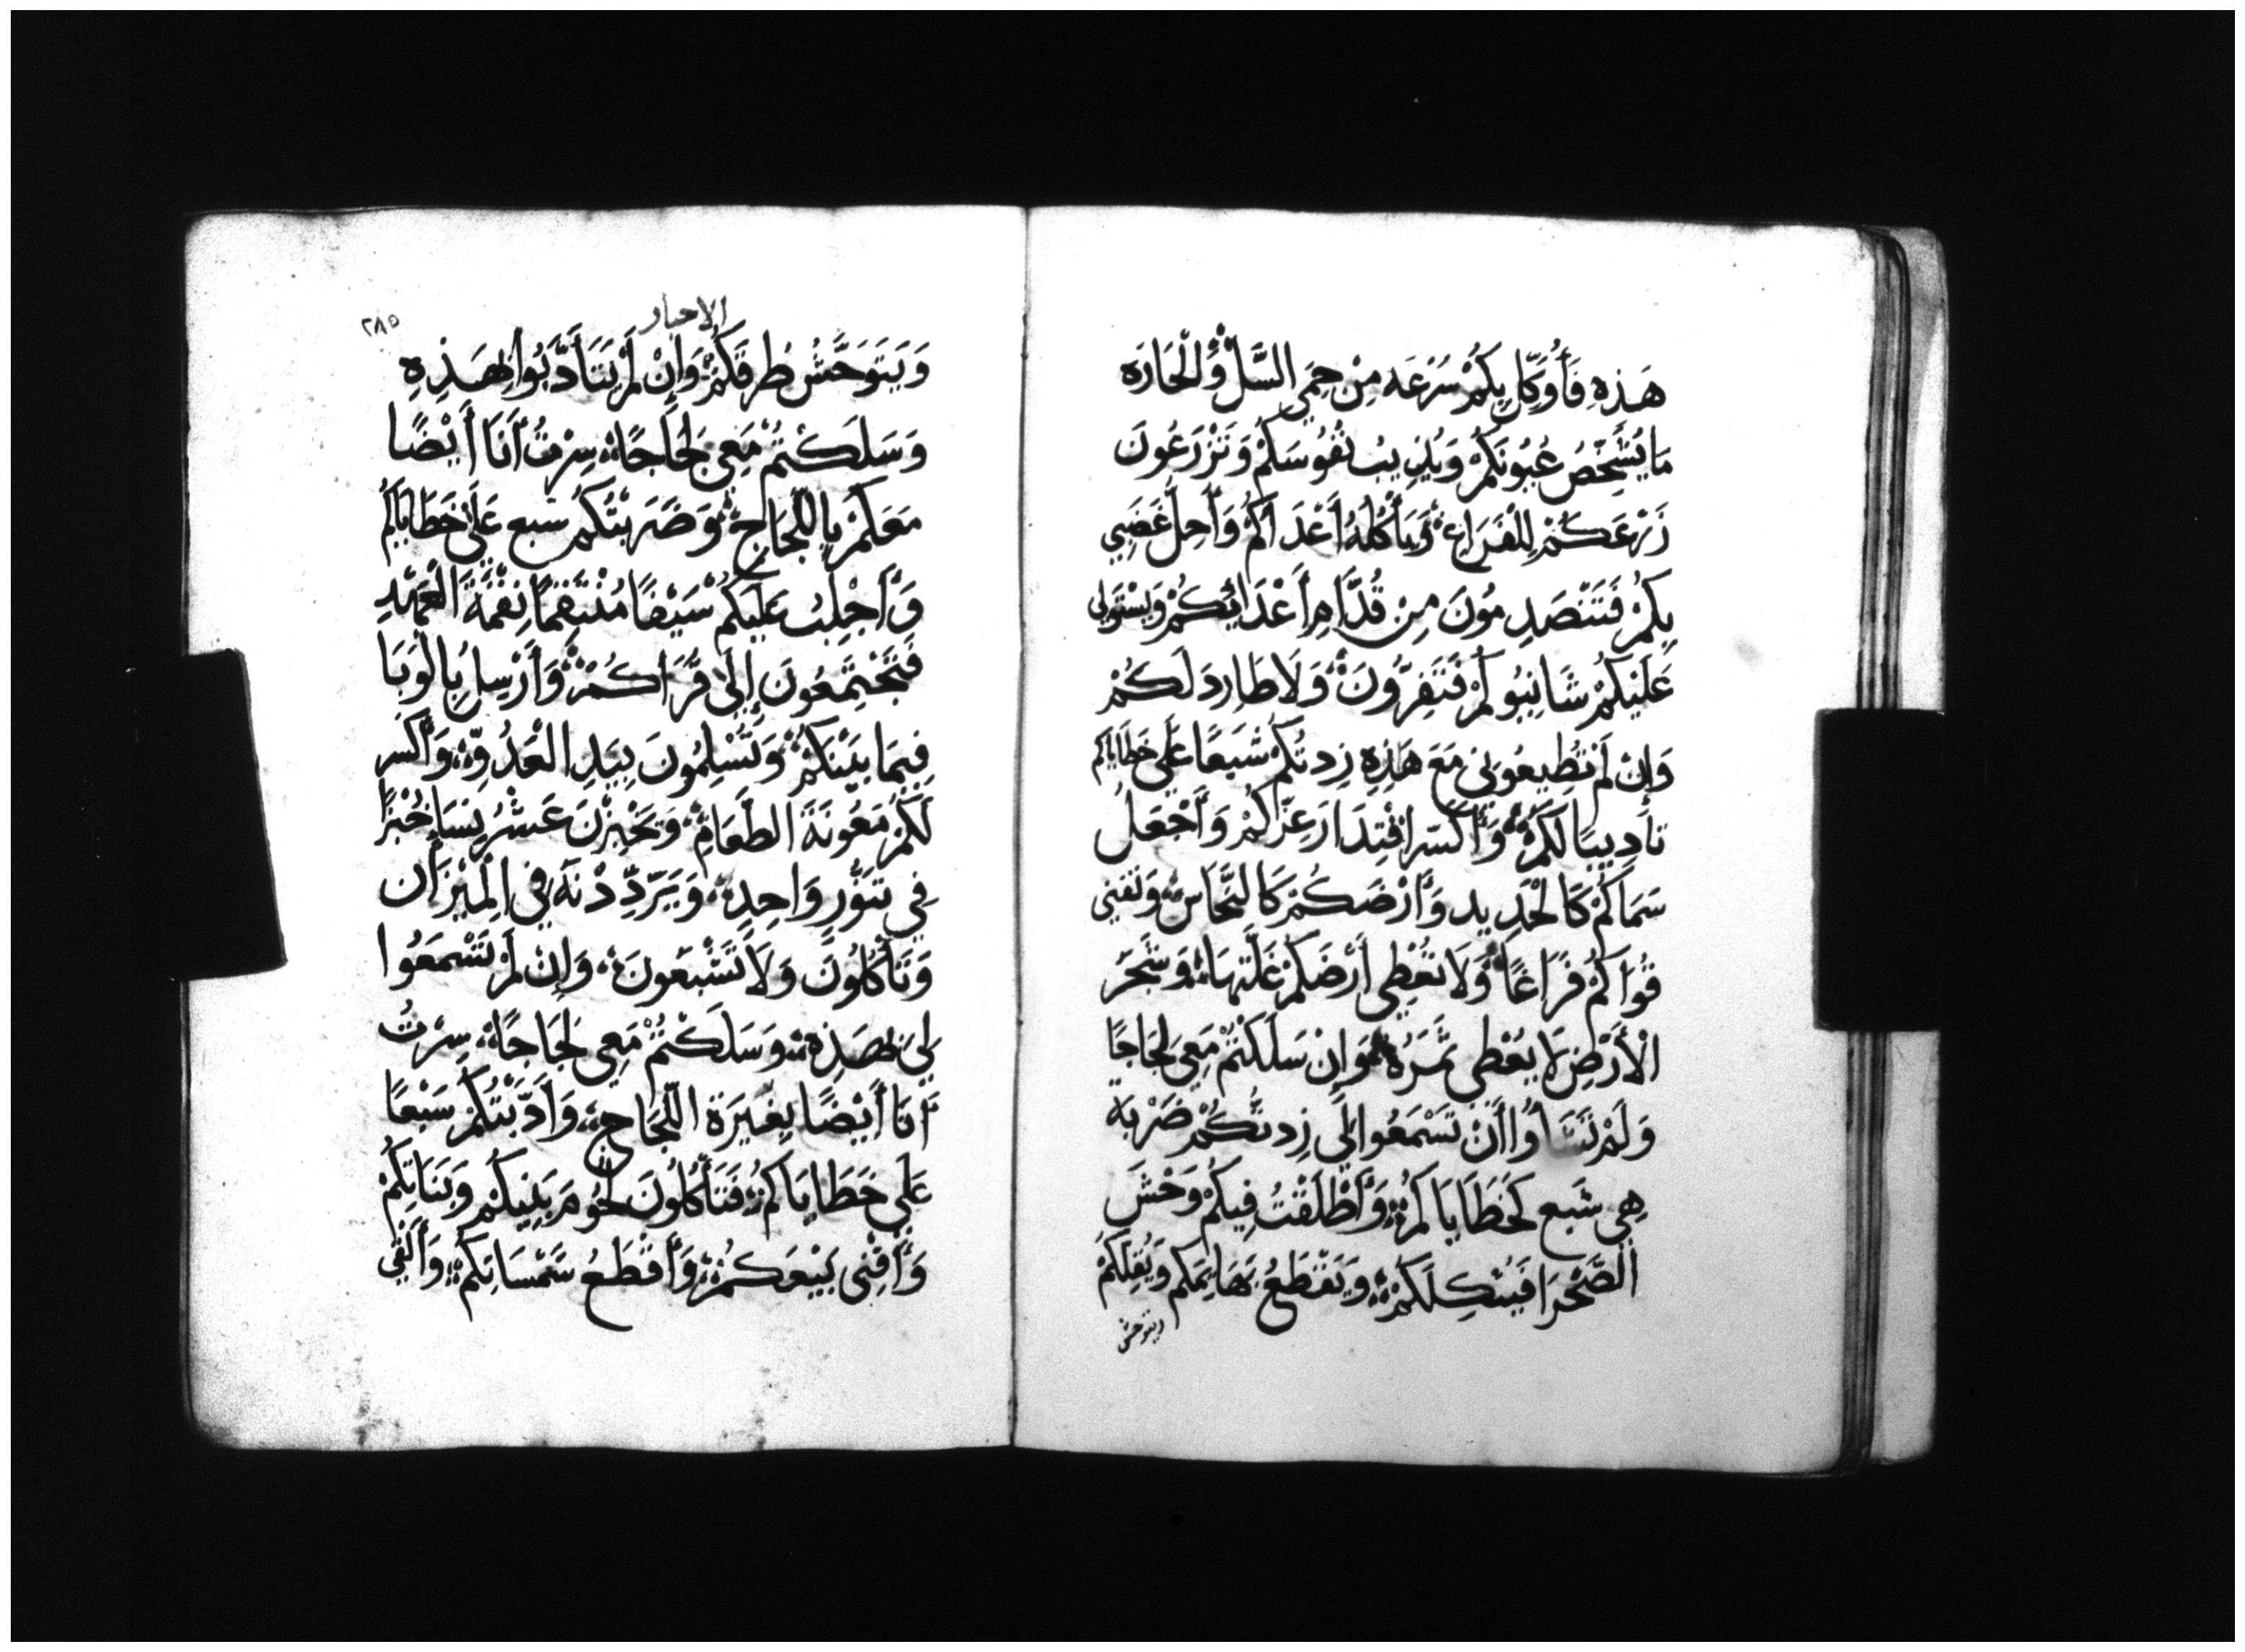 هَذِهِ فَأُوَكِّل بِكُمْ سُرْعَه مِنْ حِمَي السَّلّ وَالْحَارَه
مَا يُشَخِّصُ عُيُونَكُمْ وَيُذِيبُ نُفُوسَكُمْ وَتَزْرَعُونَ
زَرْعَكُمْ لِلْفَرَاغِ وَيَأْكُلهُ أَعْدَاكُمْ وَأَحِلُّ غَضَبِي
بِكُمْ فَتَنْصَدِمُونَ مِنْ قُدَّامِ أَعْدَائِكُمْ وَيَسْتَولِى
عَلَيْكُمْ شَانِيُوكُمْ فَتَفِرُّونَ وَلَا طَارِدَ لَكُمْ
وَإِنْ لَمْ تُطِيعُونِى مَعَ هَذِهِ زِدتُكُمْ سَبعًا عَلَي خَطَايَاكُم
تأدِيبًا لَكُمْ وَأَكْسَر اقْتِدَارَ عِزّكُمْ وَأَجْعَلُ
سَمَاكُمْ كَالْحَدِيدِ وَأَرْضَكُمْ كَالنُّحَاسِ وَتفنى
قُوَاكُمْ فَرَاغًا وَلَا تُعْطِي أَرْضَكُمْ غَلَّتهَا وَشَجَرُ
الْأَرْضِ لَا يُعْطِى ثَمَرَهُ وَانْ سَلَكْتُمْ مَعِى لَجَاجًا
وَلَمْ تَشَاؤُا أَنْ تَسْمَعُوا لِي زِدتُكُمْ ضَرْبَة
هِي سَبع كَخَطَايَاكُمْ وَأَطْلَقْتُ فِيكُمْ وَحْشَ
الصَّحْرَا فَيُثْكِلَكُمْ وَيَقْطَعُ بَهَايِمَكُم وَيُقِلّكُمْ
ويتوحش
الاحبار
٢٨٥
وَيَتَوَحَّشُ طرقَكُمْ وَإِنْ لَمْ تَتَأَدَّبُوا بِهَذِهِ
وَسَلَكْتُمْ مَعِى لَجَاجًا سِرْتُ أَنَا أَيْضًا
مَعَكُمْ بِاللَّجَاجِ وَضَرَبْتُكُمْ سَبع عَلَى خَطَايَاكُم
وَأَجْلِبُ عَلَيكُمْ سَيْفًا مُنْتَقِمًا نِقْمَةَ الْعَهْدِ
فَتَجْتَمِعُونَ إِلَي قُرَاكُمْ وَأَرْسِلُ بِالْوَبَا
فِيمَا بَيْنَكُمْ وَتُسْلِمُونَ بِيَدِ الْعَدُوِّ وَأَكْسر
لَكُمْ مَعُونَةَ الطَّعَامِ وَتَخْبِزْنَ عَشْرُ نِسَا خُبْزًا
فِي تنّورٍ وَاحِدٍ وَيَرَدِّدْنَهُ فِي الْمِيزَان
وَتَأْكُلُونَ وَلَا تَشْبَعُونَ وَإِنْ لَمْ تَسْمَعُوا
لِى بِهَذِهِ وَسَلَكْتُمْ مَعِى لَجَاجًا سِرْتُ
أَنَا أَيْضًا بِغيرَة اللَّجَاجِ وَأَدَّبْتُكُمْ سَبْعًا
عَلَي خَطَايَاكُمْ فَتَأْكُلُونَ لُحُومَ بَنِيكُمْ وَبَنَاتِكُمْ
وَأُفْنِى بِيْعَكُمْ وَأَقْطَعُ شَمْسَاتِكُمْ وَأُلْقِي